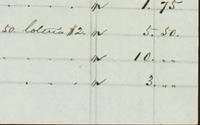 ..... " 1.75
50. loteria $2. " 5.50.
" 10...
" 3...